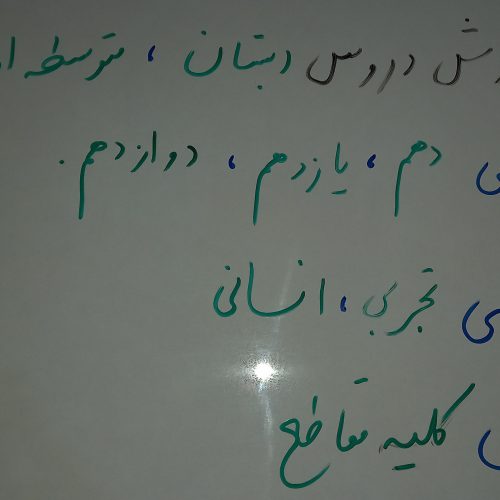 دروس دبستان ، متوسطه
دهم ، یازدهم ، دوازدهم .
تجربی ، انسانی
کلیه مقاطع